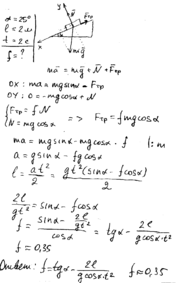 α = 25°
l = 2 м
t = 2 c
f = ?
y
N⃗
F⃗тр
x
α
mg⃗
ma⃗ = mg⃗ + N⃗ + F⃗тр
OX: ma = mg sinα - Fтр
OY: 0 = -mg cosα + N
{ Fтр = fN
N = mg cosα => Fтр = fmg cosα
ma = mg sinα - mg cosα · f | : m
a = g sinα - fg cosα
l = at²/2 = gt²(sinα - f cosα)/2
2l/gt² = sinα - f cosα
f = (sinα - 2l/gt²)/cosα = tgα - 2l/(g cosα · t²)
f ≈ 0,35
Ответ: f = tgα - 2l/(g cosα · t²) f ≈ 0,35